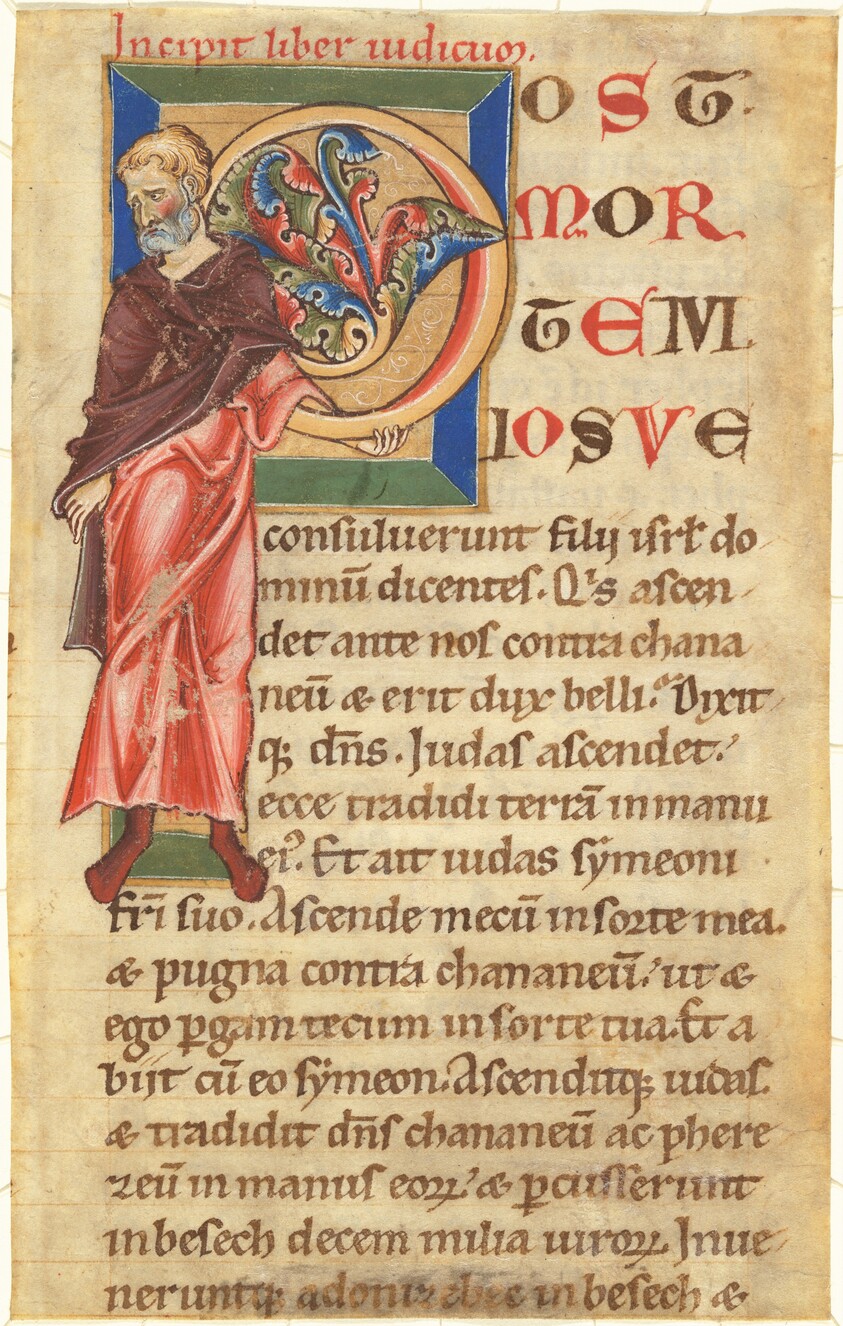 Incipit liber iudicum.
POST
MOR
TEM
IOSVE
consuluerunt filij isrł do
minū dicentes. Qⁱs ascen
det ante nos contra chana
neū & erit dux belli? Dixit
q; dn̄s. Iudas ascendet.
ecce tradidi terrā in manu
eiꝰ. Et ait iudas symeoni
fr̄i suo. Ascende mecū in sorte mea.
& pugna contra chananeū. ut &
ego ꝑgam tecum in sorte tua. Et a
bijt cū eo symeon. Ascenditq; iudas.
& tradidit dn̄s chananeū ac phere
zeū in manus eoꝝ. & ꝑcusserunt
in besech decem milia uiroꝝ. Inue
neruntq; adonizebec in besech &